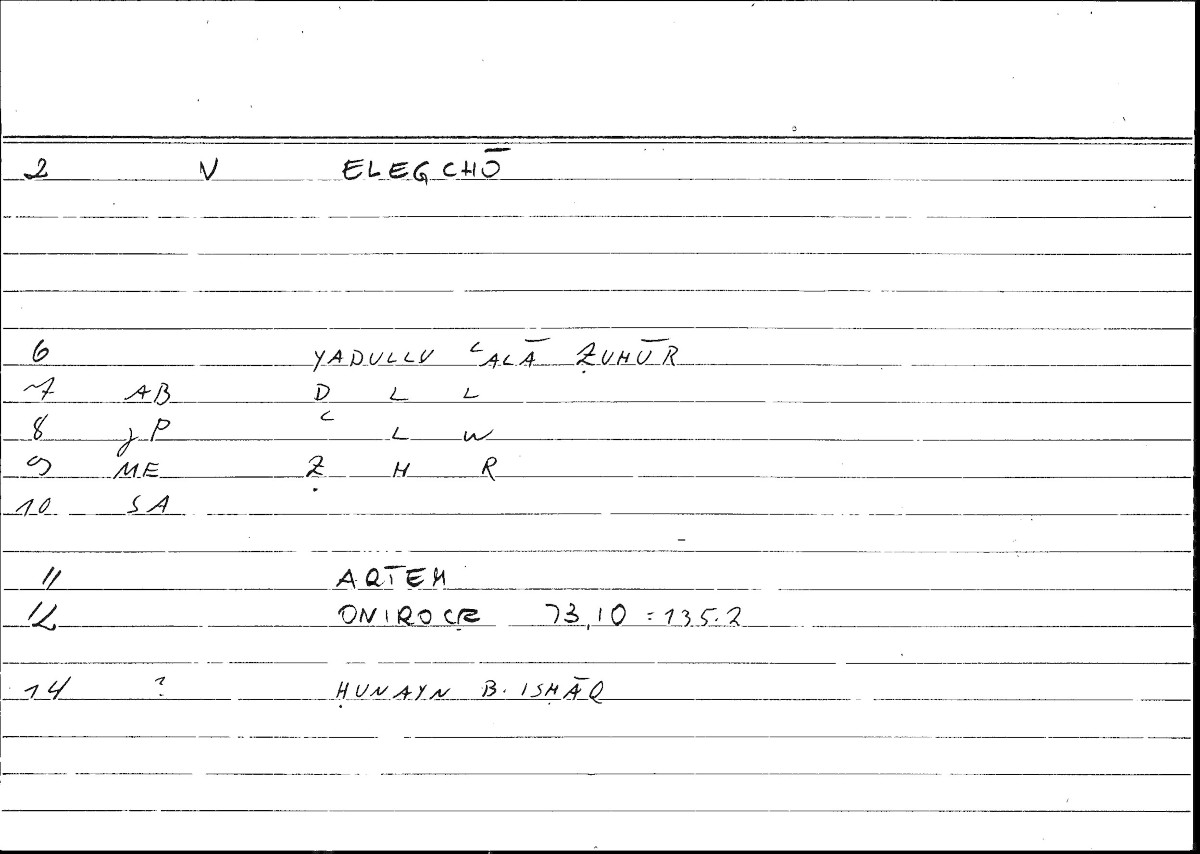 2 V ELEGCHŌ
6 YADULLU ʿALĀ ẒUHŪR
7 AB D L L
8 JP ʿ L W
9 ME Ẓ H R
10 SA
11 ARTEM
12 ONIROCR 73,10 = 135.2
14 ? ḤUNAYN B. ISḤĀQ